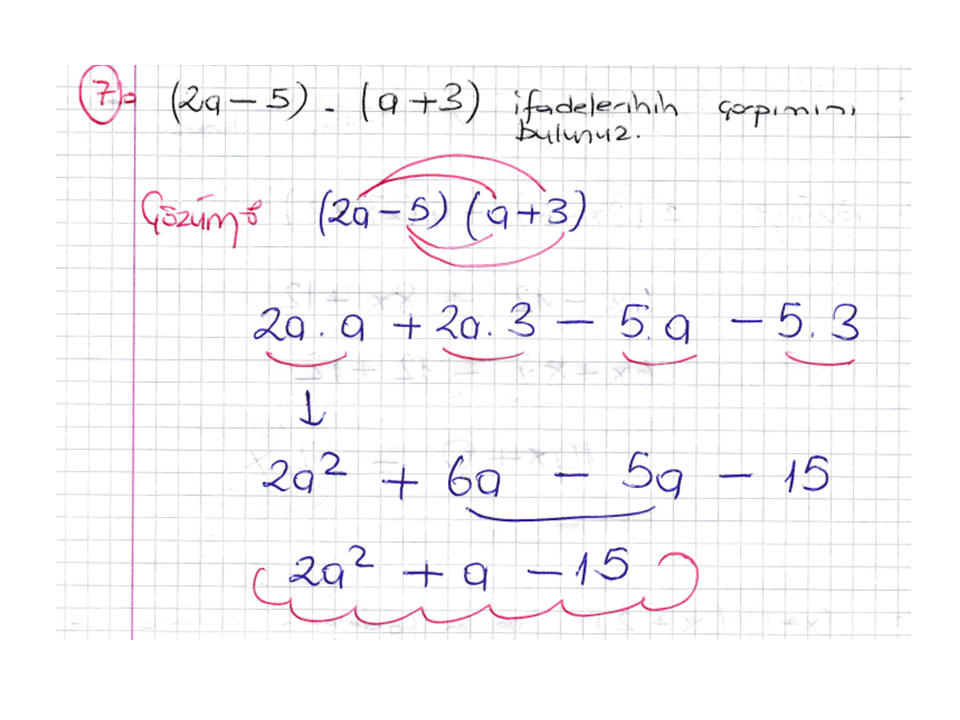 7) (2a-5) . (a+3) ifadelerinin çarpımını
bulunuz.
Çözüm: (2a-5)(a+3)
2a.a + 2a.3 - 5.a - 5.3
↓
2a² + 6a - 5a - 15
2a² + a - 15